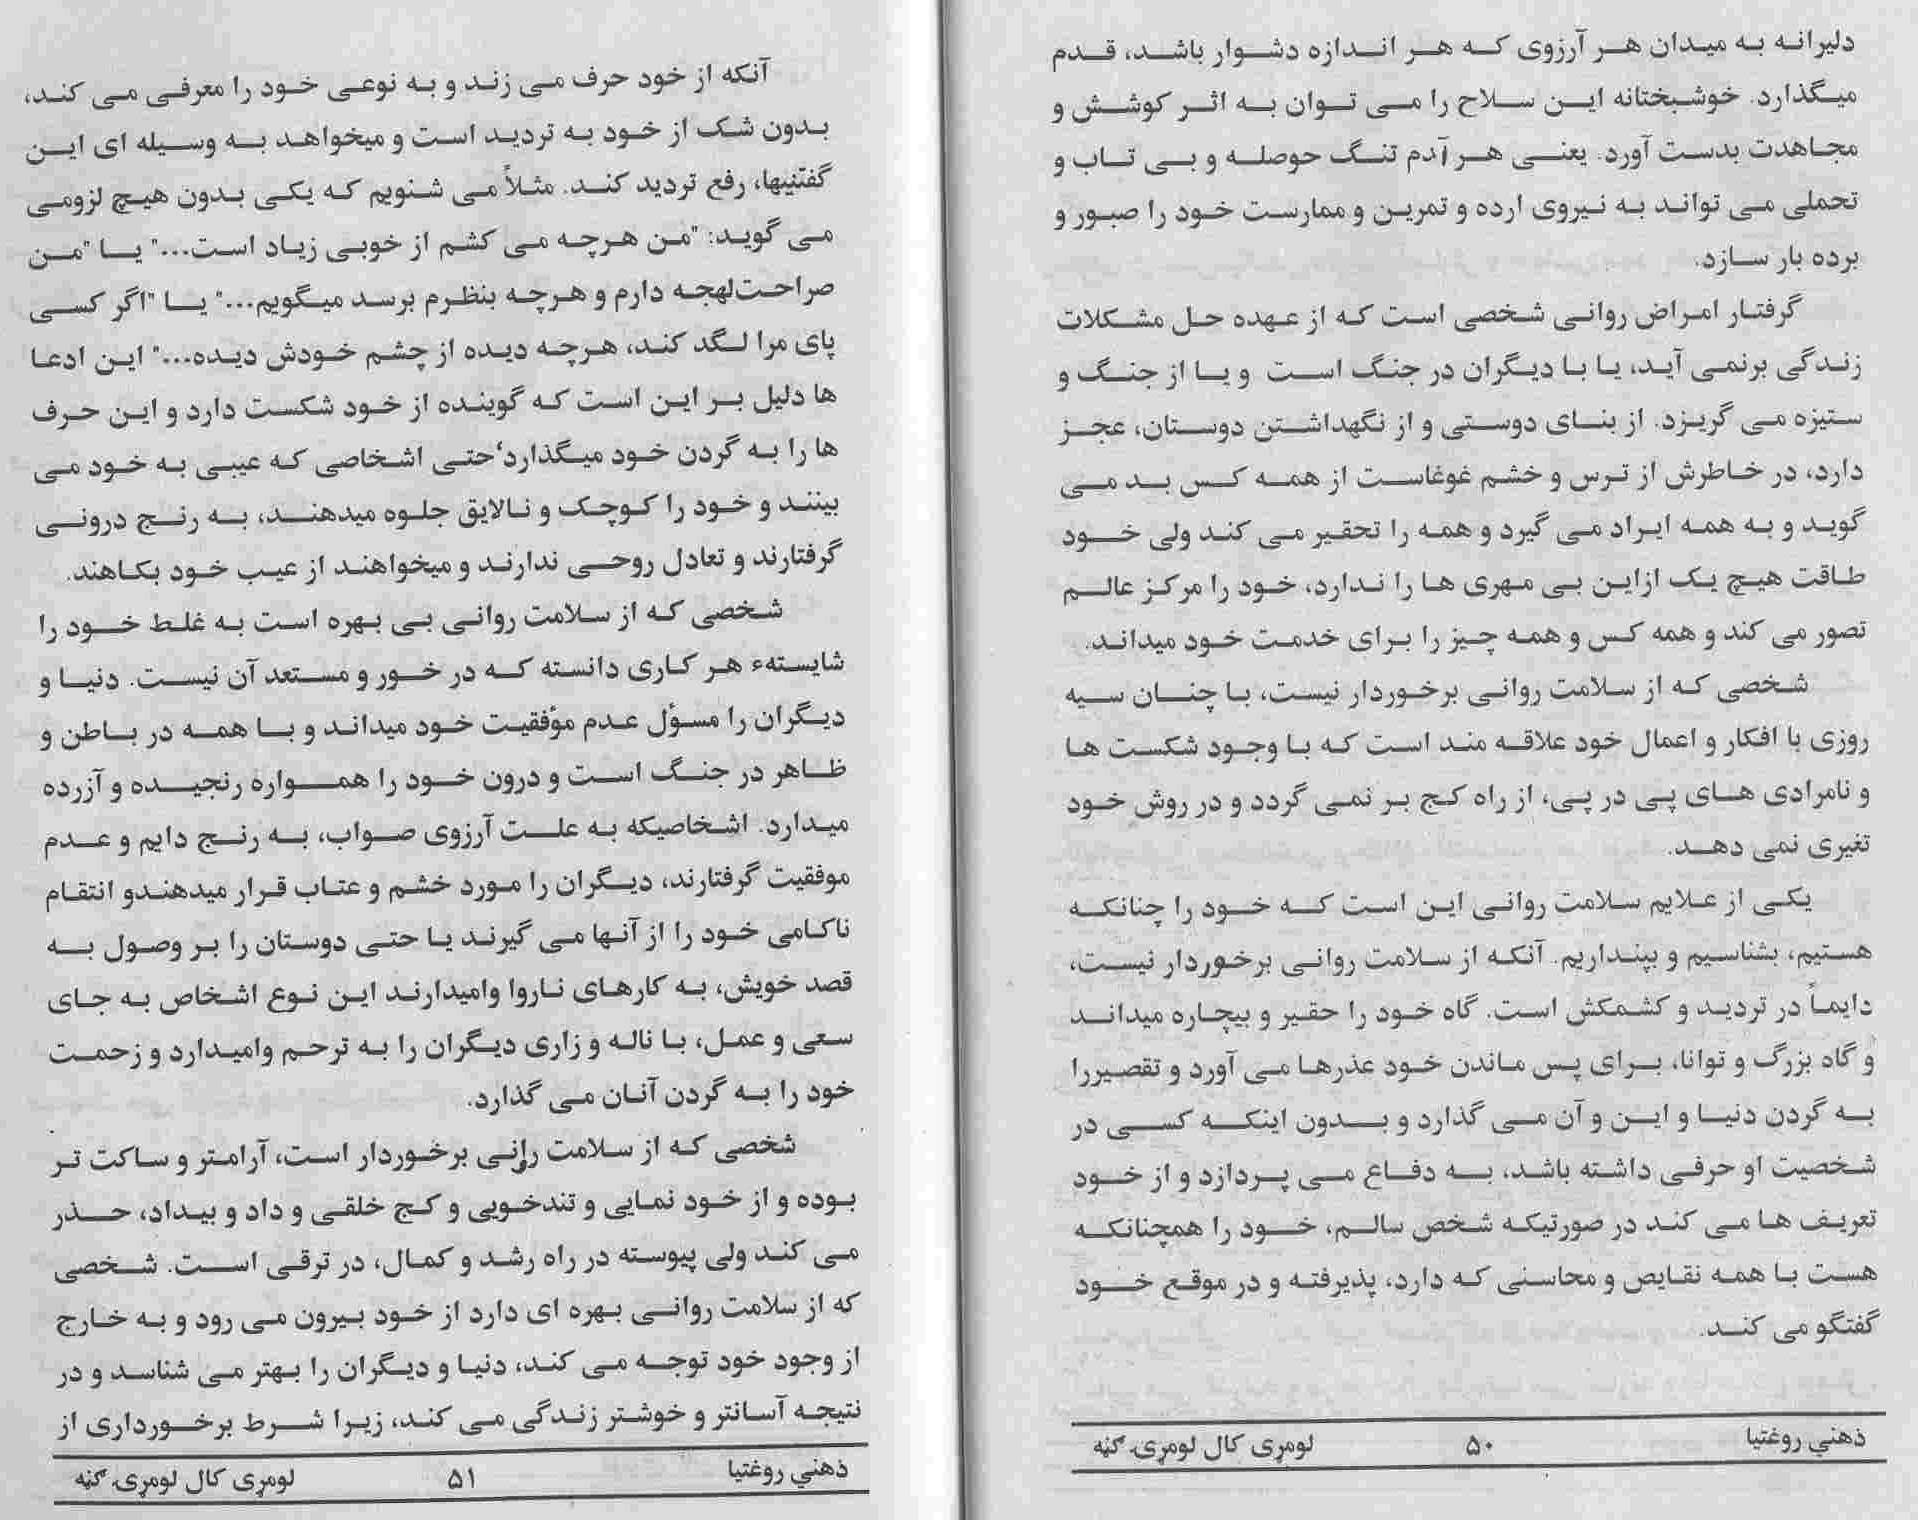 دلیرانه به میدان هر آرزوی که هر اندازه دشوار باشد، قدم
میگذارد. خوشبختانه این سلاح را می توان به اثر کوشش و
مجاهدت بدست آورد. یعنی هر آدم تنگ حوصله و بی تاب و
تحملی می تواند به نیروی ارده و تمرین و ممارست خود را صبور و
برده بار سازد.
گرفتار امراض روانی شخصی است که از عهده حل مشکلات
زندگی برنمی آید، یا با دیگران در جنگ است و یا از جنگ و
ستیزه می گریزد. از بنای دوستی و از نگهداشتن دوستان، عجز
دارد، در خاطرش از ترس و خشم غوغاست از همه کس بد می
گوید و به همه ایراد می گیرد و همه را تحقیر می کند ولی خود
طاقت هیچ یک ازاین بی مهری ها را ندارد، خود را مرکز عالم
تصور می کند و همه کس و همه چیز را برای خدمت خود میداند.
شخصی که از سلامت روانی برخوردار نیست، با چنان سیه
روزی با افکار و اعمال خود علاقه مند است که با وجود شکست ها
و نامرادی های پی در پی، از راه کج بر نمی گردد و در روش خود
تغیری نمی دهد.
یکی از علایم سلامت روانی این است که خود را چنانکه
هستیم، بشناسیم و بپنداریم. آنکه از سلامت روانی برخوردار نیست،
دایماً در تردید و کشمکش است. گاه خود را حقیر و بیچاره میداند
و گاه بزرگ و توانا، برای پس ماندن خود عذرها می آورد و تقصیررا
به گردن دنیا و این و آن می گذارد و بدون اینکه کسی در
شخصیت او حرفی داشته باشد، به دفاع می پردازد و از خود
تعریف ها می کند در صورتیکه شخص سالم، خود را همچنانکه
هست با همه نقایص و محاسنی که دارد، پذیرفته و در موقع خود
گفتگو می کند.
ذهني روغتیا ۵۰ لومړی کال لومړۍ ګڼه
آنکه از خود حرف می زند و به نوعی خود را معرفی می کند،
بدون شک از خود به تردید است و میخواهد به وسیله ای این
گفتنیها، رفع تردید کند. مثلاً می شنویم که یکی بدون هیچ لزومی
می گوید: "من هرچه می کشم از خوبی زیاد است..." یا "من
صراحت‌لهجه دارم و هرچه بنظرم برسد میگویم..." یا "اگر کسی
پای مرا لگد کند، هرچه دیده از چشم خودش دیده..." این ادعا
ها دلیل بر این است که گوینده از خود شکست دارد و این حرف
ها را به گردن خود میگذارد،حتی اشخاصی که عیبی به خود می
بینند و خود را کوچک و نالایق جلوه میدهند، به رنج درونی
گرفتارند و تعادل روحی ندارند و میخواهند از عیب خود بکاهند.
شخصی که از سلامت روانی بی بهره است به غلط خود را
شایستهء هر کاری دانسته که در خور و مستعد آن نیست. دنیا و
دیگران را مسؤل عدم مؤفقیت خود میداند و با همه در باطن و
ظاهر در جنگ است و درون خود را همواره رنجیده و آزرده
میدارد. اشخاصیکه به علت آرزوی صواب، به رنج دایم و عدم
موفقیت گرفتارند، دیگران را مورد خشم و عتاب قرار میدهندو انتقام
ناکامی خود را از آنها می گیرند یا حتی دوستان را بر وصول به
قصد خویش، به کارهای ناروا وامیدارند این نوع اشخاص به جای
سعی و عمل، با ناله و زاری دیگران را به ترحم وامیدارد و زحمت
خود را به گردن آنان می گذارد.
شخصی که از سلامت روانی برخوردار است، آرامتر و ساکت تر
بوده و از خود نمایی و تندخویی و کج خلقی و داد و بیداد، حذر
می کند ولی پیوسته در راه رشد و کمال، در ترقی است. شخصی
که از سلامت روانی بهره ای دارد از خود بیرون می رود و به خارج
از وجود خود توجه می کند، دنیا و دیگران را بهتر می شناسد و در
نتیجه آسانتر و خوشتر زندگی می کند، زیرا شرط برخورداری از
ذهني روغتیا ۵۱ لومړی کال لومړۍ ګڼه